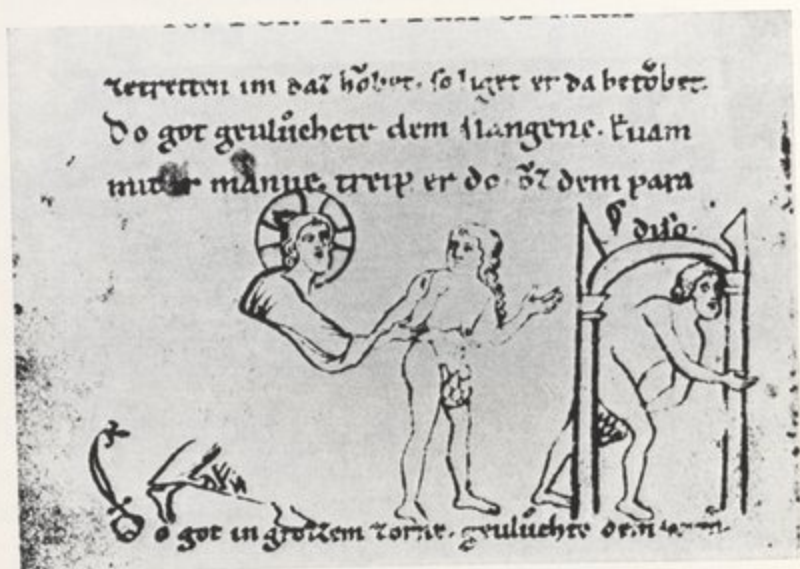 zetretten im daz hoͮbet. so liget er da betoͮbet.
Do got geuluͦchete dem slangene. Euam
mit ir manne. treip er do. vͦz dem para
diso.
Do got in grozzem zorne. geuluchte dem